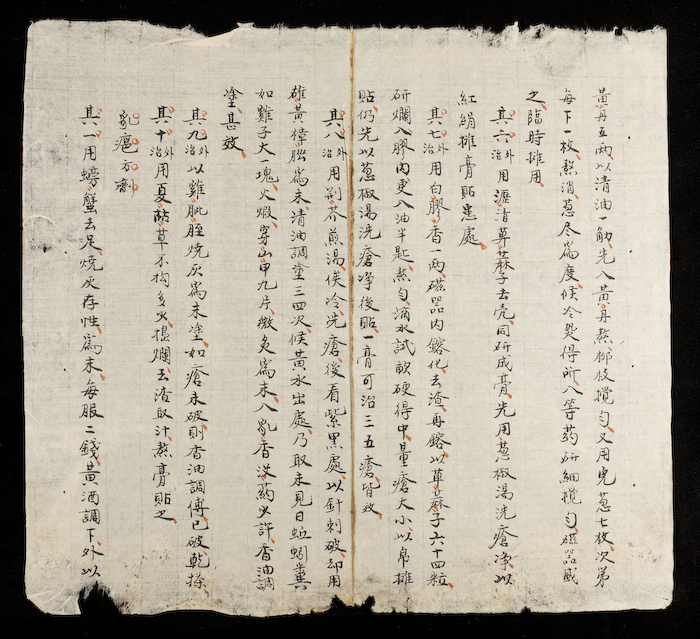 黃丹五兩以清油一觔先入黃丹熬柳枝攪勻又用兜葱七枚次第
每下一枚熬消葱尽為度候冷煲得所入等药研細攪勻磁器盛
之臨時摊用
其六外治用瀝清萆蔴子去壳同研成膏先用葱椒湯洗瘡净以
紅絹摊膏貼患處
其七外治用白膠香一兩磁器内鎔化去渣再鎔以萆蔴子六十四粒
研爛入膠内更入油半匙熬勻滴水試軟硬得中量瘡大小以帛摊
貼仍先以葱椒湯洗瘡净後貼一膏可治三五瘡皆效
其八外治用荆芥煎湯俟冷洗瘡後看紫黑處以針刺破却用
雄黃樟腦為末清油調塗三四次候黃水出處乃取未見日蚯蚓糞
如雞子大一塊火煅穿山甲九片微炙為末入乳香没药少許香油調
塗甚效
其九外治以雞肶胵燒灰為末塗如瘡未破則香油調傅已破乾搽
其十外治用夏砧草不拘多少搗爛去渣取汁熬膏貼之
乳瘡方劑
其一用螃蟹去足燒灰存性為末每服二錢黃酒調下外以